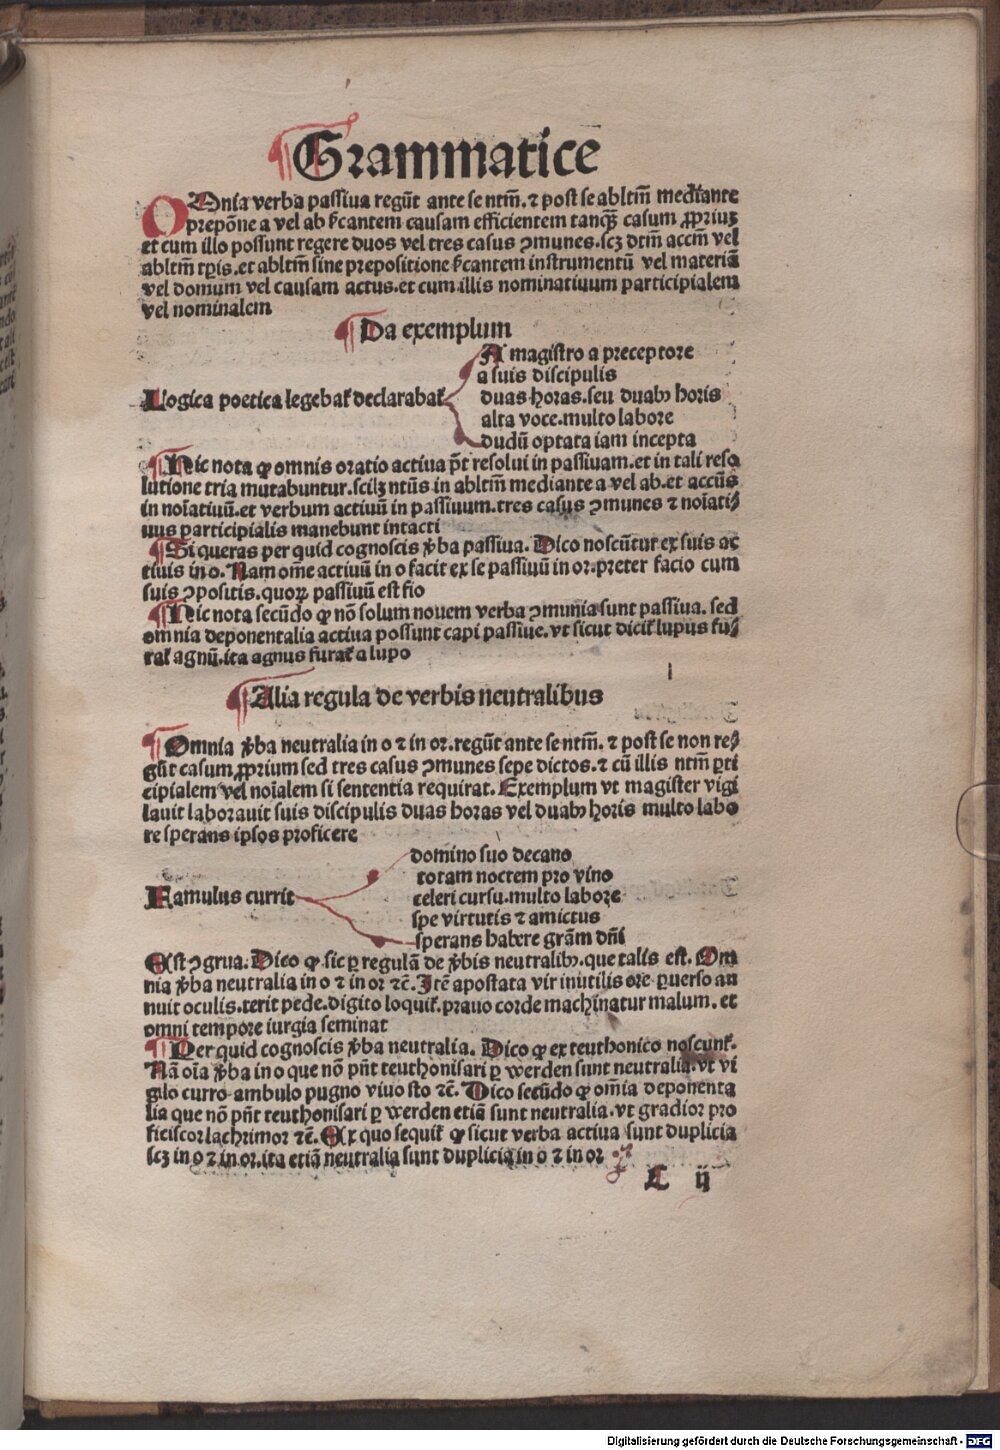 Grammatice
OMnia verba passiua regūt ante se ntm̄. ⁊ post se abltm̄ mediante
prepōne a vel ab ſcantem causam efficientem tanqȝ casum ꝓpriuȝ
et cum illo possunt regere duos vel tres casus ꝯmunes.scȝ dtm̄ accm̄ vel
abltm̄ tꝑis.et abltm̄ sine prepositione ſcantem instrumentū vel materiā
vel domum vel causam actus.et cum illis nominatiuum participialem
vel nominalem
Da exemplum
A magistro a preceptore
a suis discipulis
Logica poetica legebat᷑ declarabat᷑ duas horas.seu duabꝰ horis
alta voce.multo labore
dudū optata iam incepta
Hic nota ꝙ omnis oratio actiua pōt resolui in passiuam.et in tali reso
lutione tria mutabuntur.scilȝ ntūs in abltm̄ mediante a vel ab.et accūs
in noīatiuū.et verbum actiuū in passiuum.tres casus ꝯmunes ⁊ noīati⸗
uus participialis manebunt intacti
Si queras per quid cognoscis v̓ba passiua. Dico noscūtur ex suis ac
tiuis in o. Nam om̄e actiuū in o facit ex se passiuū in or.preter facio cum
suis ꝯpositis.quoꝝ passiuū est fio
Hic nota secūdo ꝙ nō solum nouem verba ꝯmunia sunt passiua. sed
omnia deponentalia actiua possunt capi passiue.vt sicut dicit᷑ lupus fu⸗
rat᷑ agnū.ita agnus furat᷑ a lupo
Alia regula de verbis neutralibus
Omnia v̓ba neutralia in o ⁊ in or.regūt ante se ntm̄. ⁊ post se non re⸗
gūt casum ꝓprium sed tres casus ꝯmunes sepe dictos.⁊ cū illis ntm̄ ꝑti
cipialem vel noīalem si sententia requirat. Exemplum vt magister vigi
lauit laborauit suis discipulis duas horas vel duabꝰ horis multo labo
re sperans ipsos proficere
domino suo decano
totam noctem pro vino
Famulus currit celeri cursu.multo labore
spe virtutis ⁊ amictus
sperans habere grām dn̄i
Est ꝯgrua. Dico ꝙ sic ꝑ regulā de v̓bis neutralibꝰ.que talis est. Om
nia v̓ba neutralia in o ⁊ in or ⁊c̄. Itē apostata vir inutilis ore ꝑuerso an
nuit oculis.terit pede.digito loquit᷑.prauo corde machinatur malum.et
omni tempore iurgia seminat
Per quid cognoscis v̓ba neutralia. Dico ꝙ ex teuthonico noscunt᷑.
Nā oīa v̓ba in o que nō pn̄t teuthonisari ꝑ werden sunt neutralia.vt vi
gilo curro ambulo pugno viuo sto ⁊c̄. Dico secūdo ꝙ om̄ia deponenta
lia que nō pn̄t teuthonisari ꝑ werden etiā sunt neutralia.vt gradior pro
ficiscor lachrimor ⁊c̄. Ex quo sequit᷑ ꝙ sicut verba actiua sunt duplicia
scȝ in o ⁊ in or.ita etiā neutralia sunt duplicia in o ⁊ in or
C ij
Digitalisierung gefördert durch die Deutsche Forschungsgemeinschaft - DFG